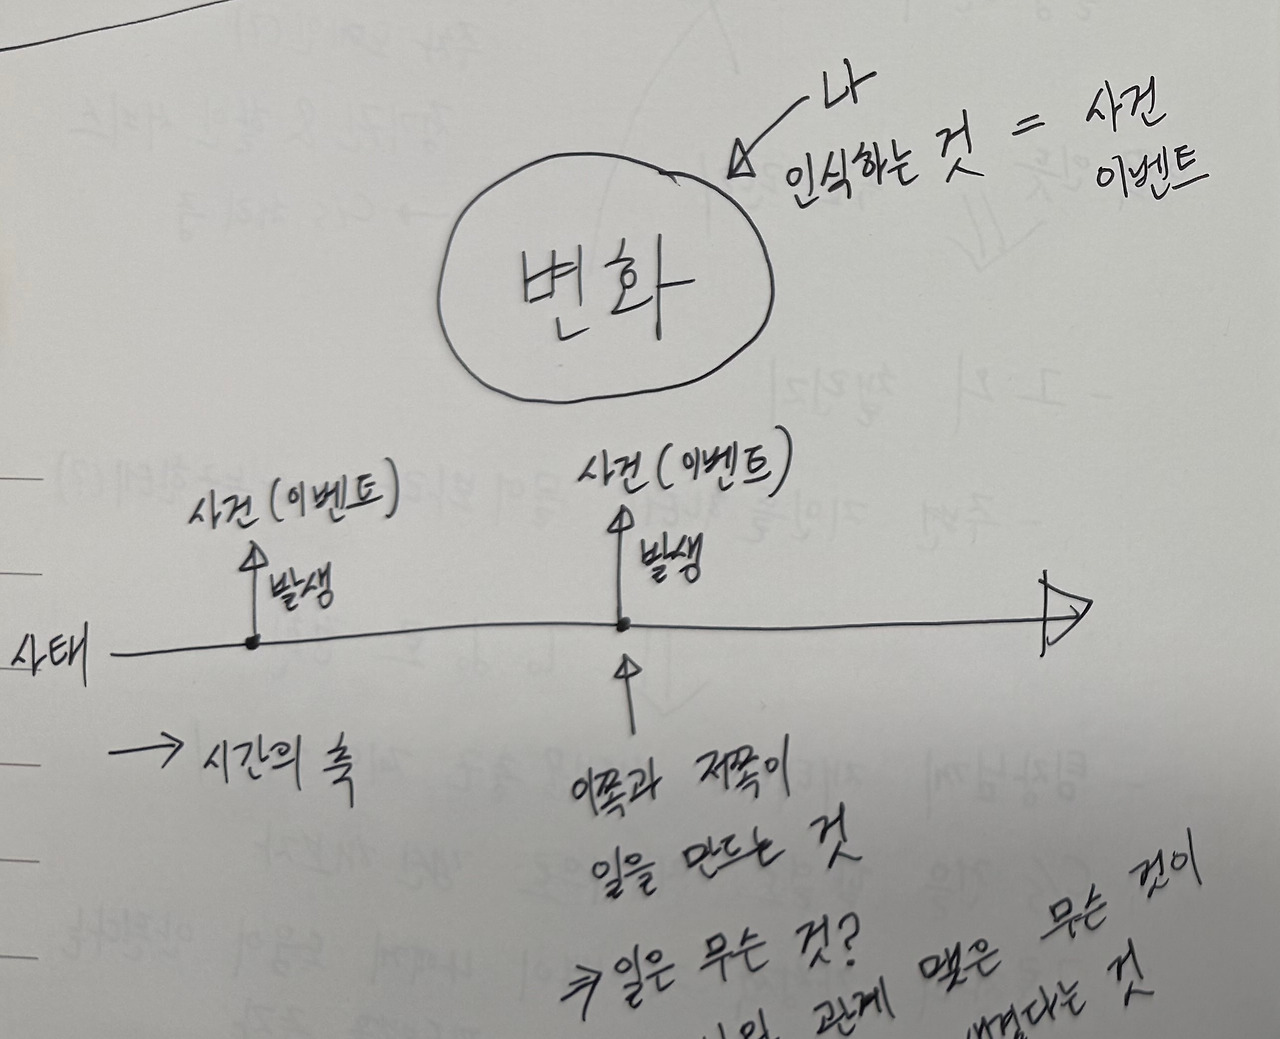 나
인식하는 것 = 사건
이벤트
변화
사건(이벤트)
사건(이벤트)
발생
발생
사태
→ 시간의 축
이쪽과 저쪽이
일을 만드는 것
⇒ 일은 무슨 것?
관계 맺은 무슨 것이
생겼다는 것